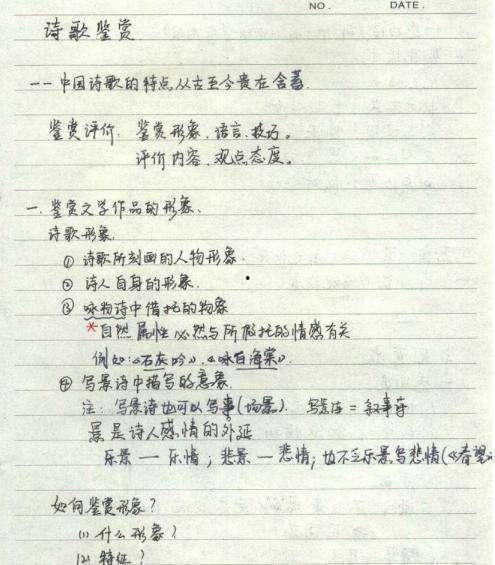 NO. DATE.
诗歌鉴赏
一一中国诗歌的特点从古至今贵在含蓄.
鉴赏评价: 鉴赏形象、语言、技巧。
评价内容、观点态度。
一、鉴赏文学作品的形象、
诗歌形象.
① 诗歌所刻画的人物形象.
② 诗人自身的形象.
③ 咏物诗中借托的物象
*自然属性必然与所假托的情感有关
例如:《石灰吟》、《咏白海棠》.
④ 写景诗中描写的意象.
注: 写景诗也可以写事(场景). 写景诗=叙事诗
景是诗人感情的外延
乐景—乐情; 悲景—悲情; 也不乏乐景写悲情(《春望》
如何鉴赏形象?
(1) 什么形象?
(2) 特征?